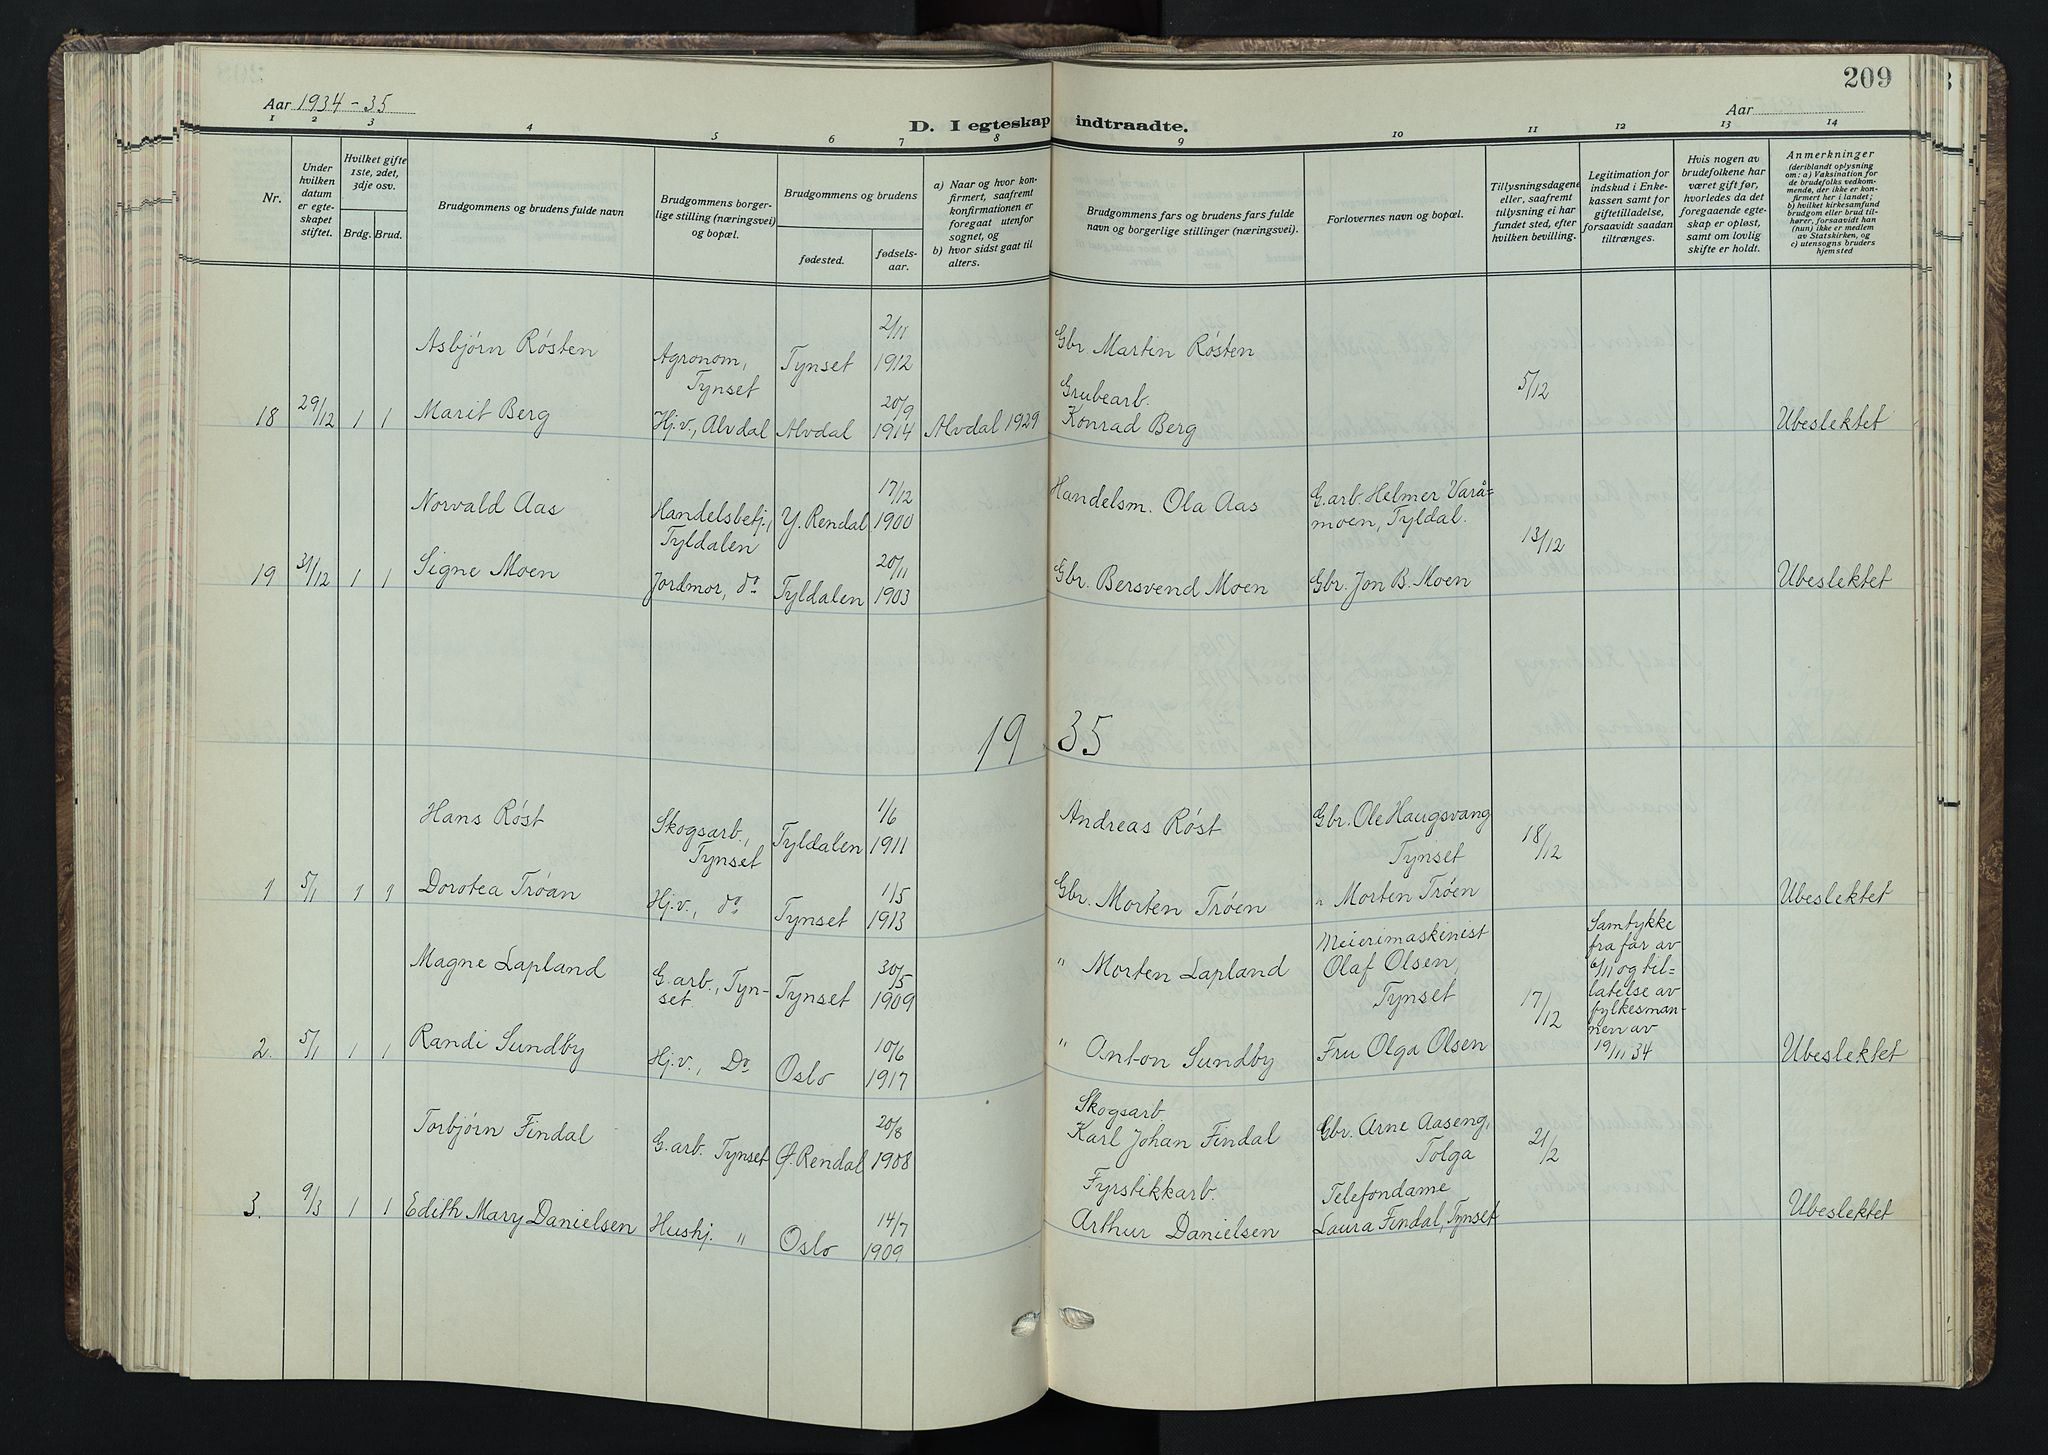 209
Aar 1934-35
Aar
D. I egteskap indtraadte.
1 2 3 4 5 6 7 8 9 10 11 12 13 14
Nr.
Under hvilken datum er egteskapet stiftet.
Hvilket gifte 1ste, 2det, 3dje osv.
Brdg. Brud.
Brudgommens og brudens fulde navn
Brudgommens borgerlige stilling (næringsvei) og bopæl.
Brudgommens og brudens
fødested.
fødselsaar.
a) Naar og hvor konfirmert, saafremt konfirmationen er foregaat utenfor sognet, og
b) hvor sidst gaat til alters.
Brudgommens fars og brudens fars fulde navn og borgerlige stillinger (næringsvei).
Forlovernes navn og bopæl.
Tillysningsdagene eller, saafremt tillysning ei har fundet sted, efter hvilken bevilling.
Legitimation for indskud i Enkekassen samt for giftetilladelse, forsaavidt saadan tiltrænges.
Hvis nogen av brudefolkene har været gift før, hvorledes da det foregaaende egteskap er opløst, samt om lovlig skifte er holdt.
Anmerkninger
(deriblandt oplysning om: a) Vaksination for de brudefolks vedkommende, der ikke er konfirmert her i landet; b) hvilket kirkesamfund brudgom eller brud tilhører, forsaavidt han (hun) ikke er medlem av Statskirken, og c) utensogns bruders hjemsted
Asbjørn Røsten Agronom, Tynset Tynset 2/11 1912 Gbr. Martin Røsten
18 29/12 1 1 Marit Berg Hj.v., Alvdal Alvdal 20/9 1914 Alvdal 1929 Grubearb. Konrad Berg 5/12 Ubeslektet
Norvald Aas Handelsbetj., Tyldalen Y. Rendal 17/12 1900 Handelsm. Ola Aas G.arb. Helmer Varå=moen, Tyldal.
19 31/12 1 1 Signe Moen Jordmor, do Tyldalen 20/11 1903 Gbr. Bersvend Moen Gbr. Jon B. Moen 13/12 Ubeslektet
19 35
Hans Røst Skogsarb., Tynset Tyldalen 1/6 1911 Andreas Røst Gbr. Ole Haugsvang Tynset 18/12
1 5/1 1 1 Dorotea Trøan Hj.v., do Tynset 1/5 1913 Gbr. Morten Trøen " Morten Trøen Ubeslektet
Magne Lapland G.arb., Tyn-set. Tynset 30/5 1909 " Morten Lapland Meierimaskinist Olaf Olsen, Tynset 17/12 Samtykke fra far av 6/11 og til=latelse av fylkesman-nen av 19/11 34
2. 5/1 1 1 Randi Sundby Hj.v., Do Oslo 10/6 1917 " Anton Sundby Fru Olga Olsen Ubeslektet
Torbjørn Findal G.arb. Tynset Ø. Rendal 20/8 1908 Skogsarb. Karl Johan Findal Gbr. Arne Aaseng, Tolga 21/2
3. 9/3 1 1 Edith Mary Danielsen Hushj. " Oslo 14/7 1909 Fyrstikkarb. Arthur Danielsen Telefondame Laura Findal, Tynset Ubeslektet